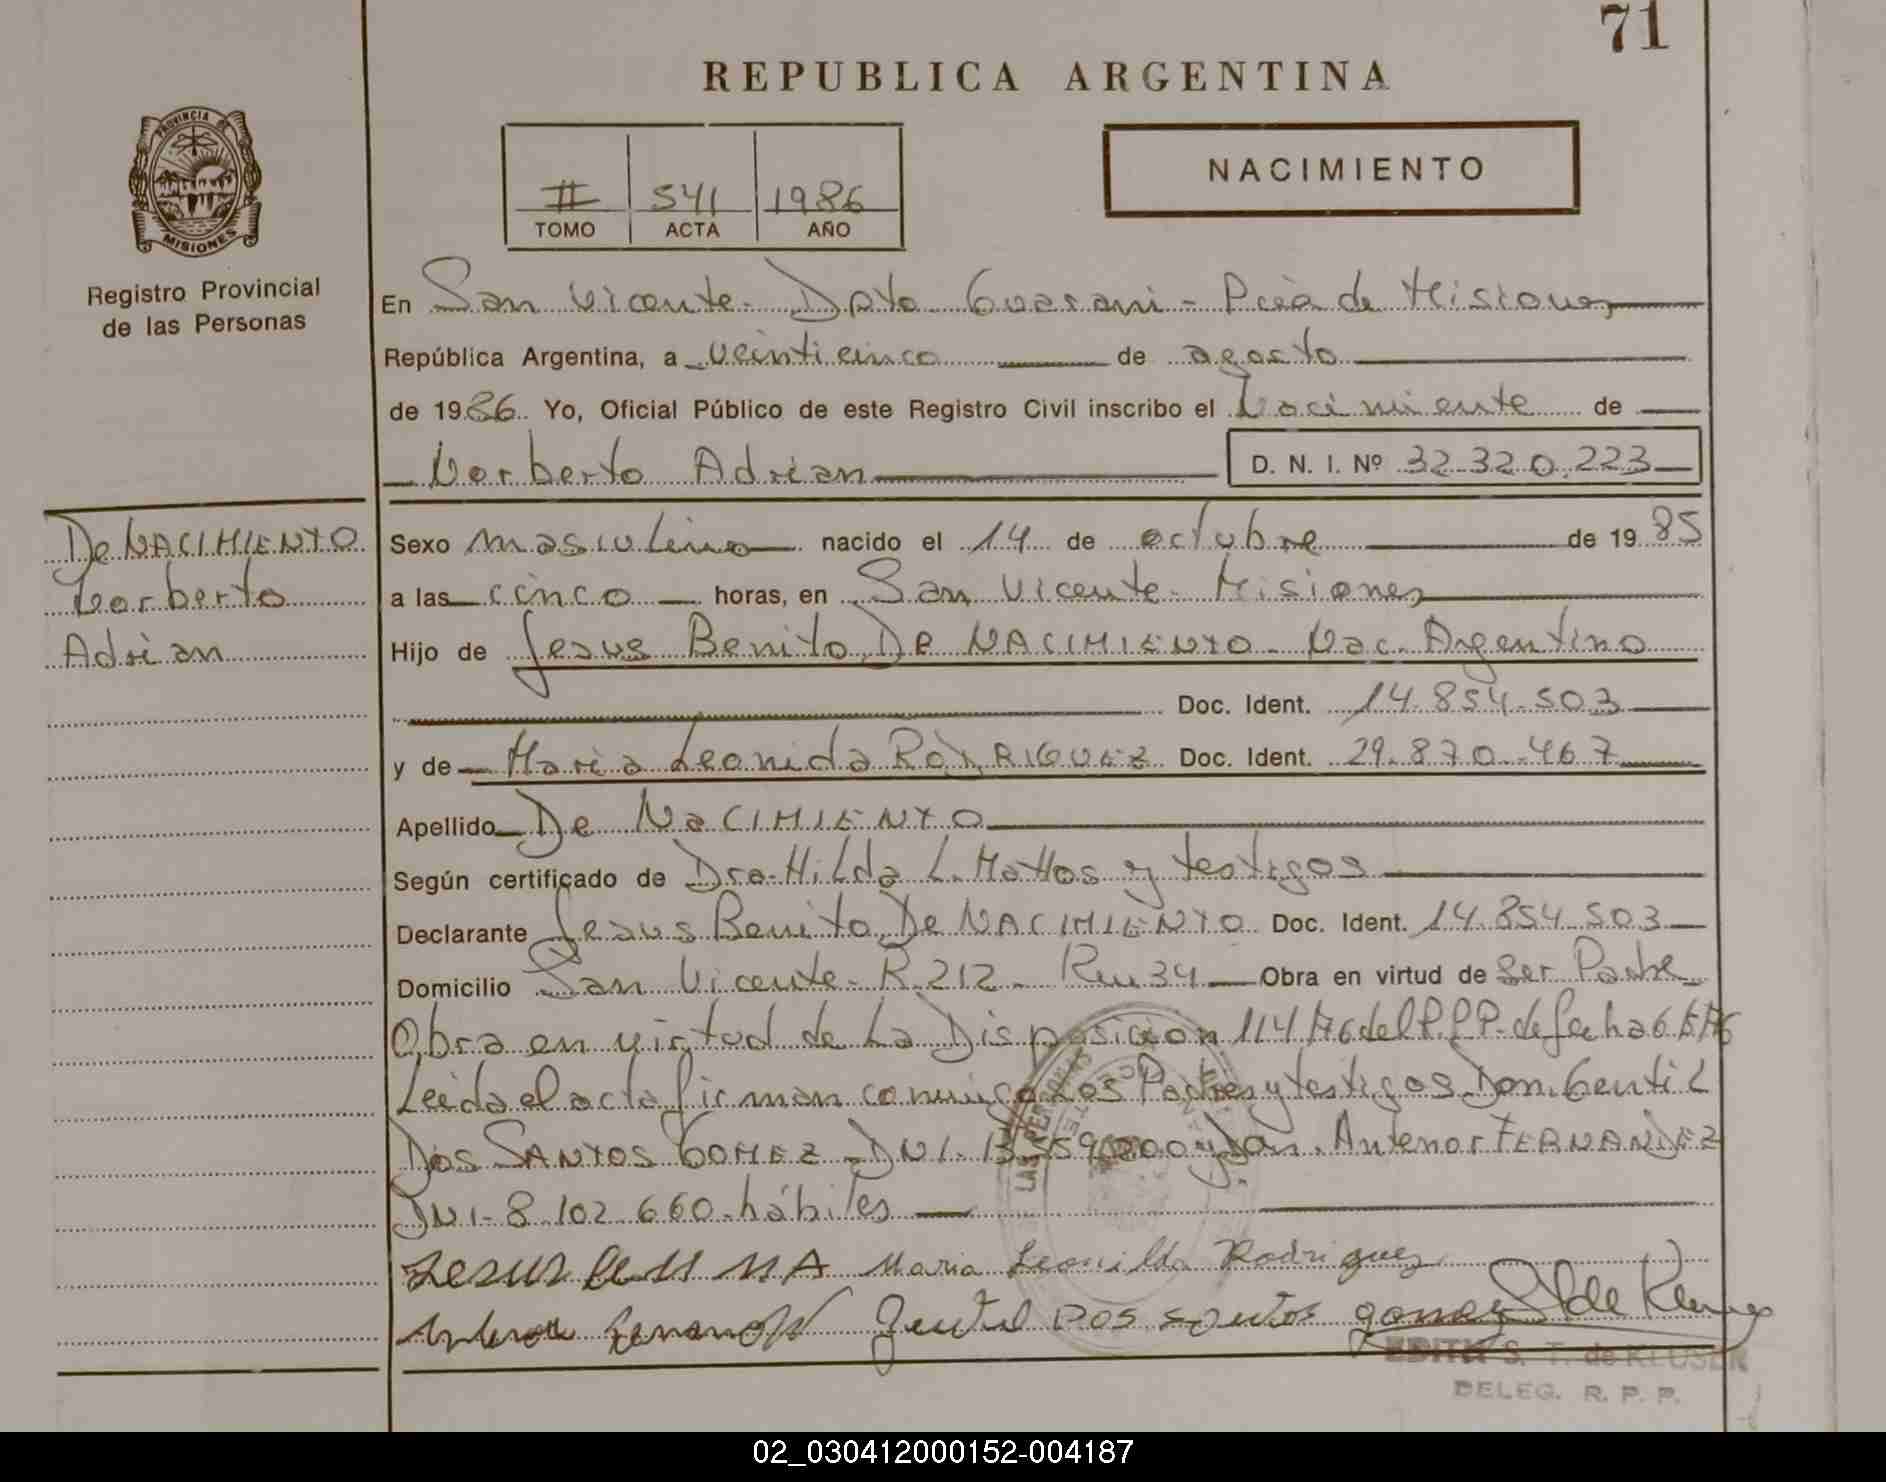 71
REPUBLICA ARGENTINA
PROVINCIA DE
MISIONES
Registro Provincial
de las Personas
II 541 1986
TOMO ACTA AÑO
NACIMIENTO
En San Vicente - Dpto Guarani - Pcia de Misiones
República Argentina, a veinticinco de agosto
de 1986. Yo, Oficial Público de este Registro Civil inscribo el Nacimiento de
Norberto Adrian D. N. I. Nº 32.320.223
De NACIMIENTO
Norberto
Adrian
Sexo masculino nacido el 14 de octubre de 1985
a las cinco horas, en San Vicente - Misiones
Hijo de Jesus Benito De NACIMIENTO - Nac. Argentino
Doc. Ident. 14.854.503
y de Maria Leonida RODRIGUEZ Doc. Ident. 29.870.467
Apellido De NaCIMIENTO
Según certificado de Dra. Hilda L. Mattos y testigos
Declarante Jesus Benito De NACIMIENTO Doc. Ident. 14.854.503
Domicilio San Vicente - R. 212 - Km 34 Obra en virtud de Ser Padre
Obra en virtud de La Disposicion 114/76 del R.P.P. de fecha 6.5.76
Leida el acta firman conmigo Los Padres y testigos Don. Gentil
Dos SANTOS GOMEZ - DNI. y Don. Antenor FERNANDEZ
DNI- 8.102.660 - hábiles
Maria Leonilda Rodriguez
Gentil DOS santos gomez
EDITH S. T. de KLUSEN
DELEG. R. P. P.
02_030412000152-004187